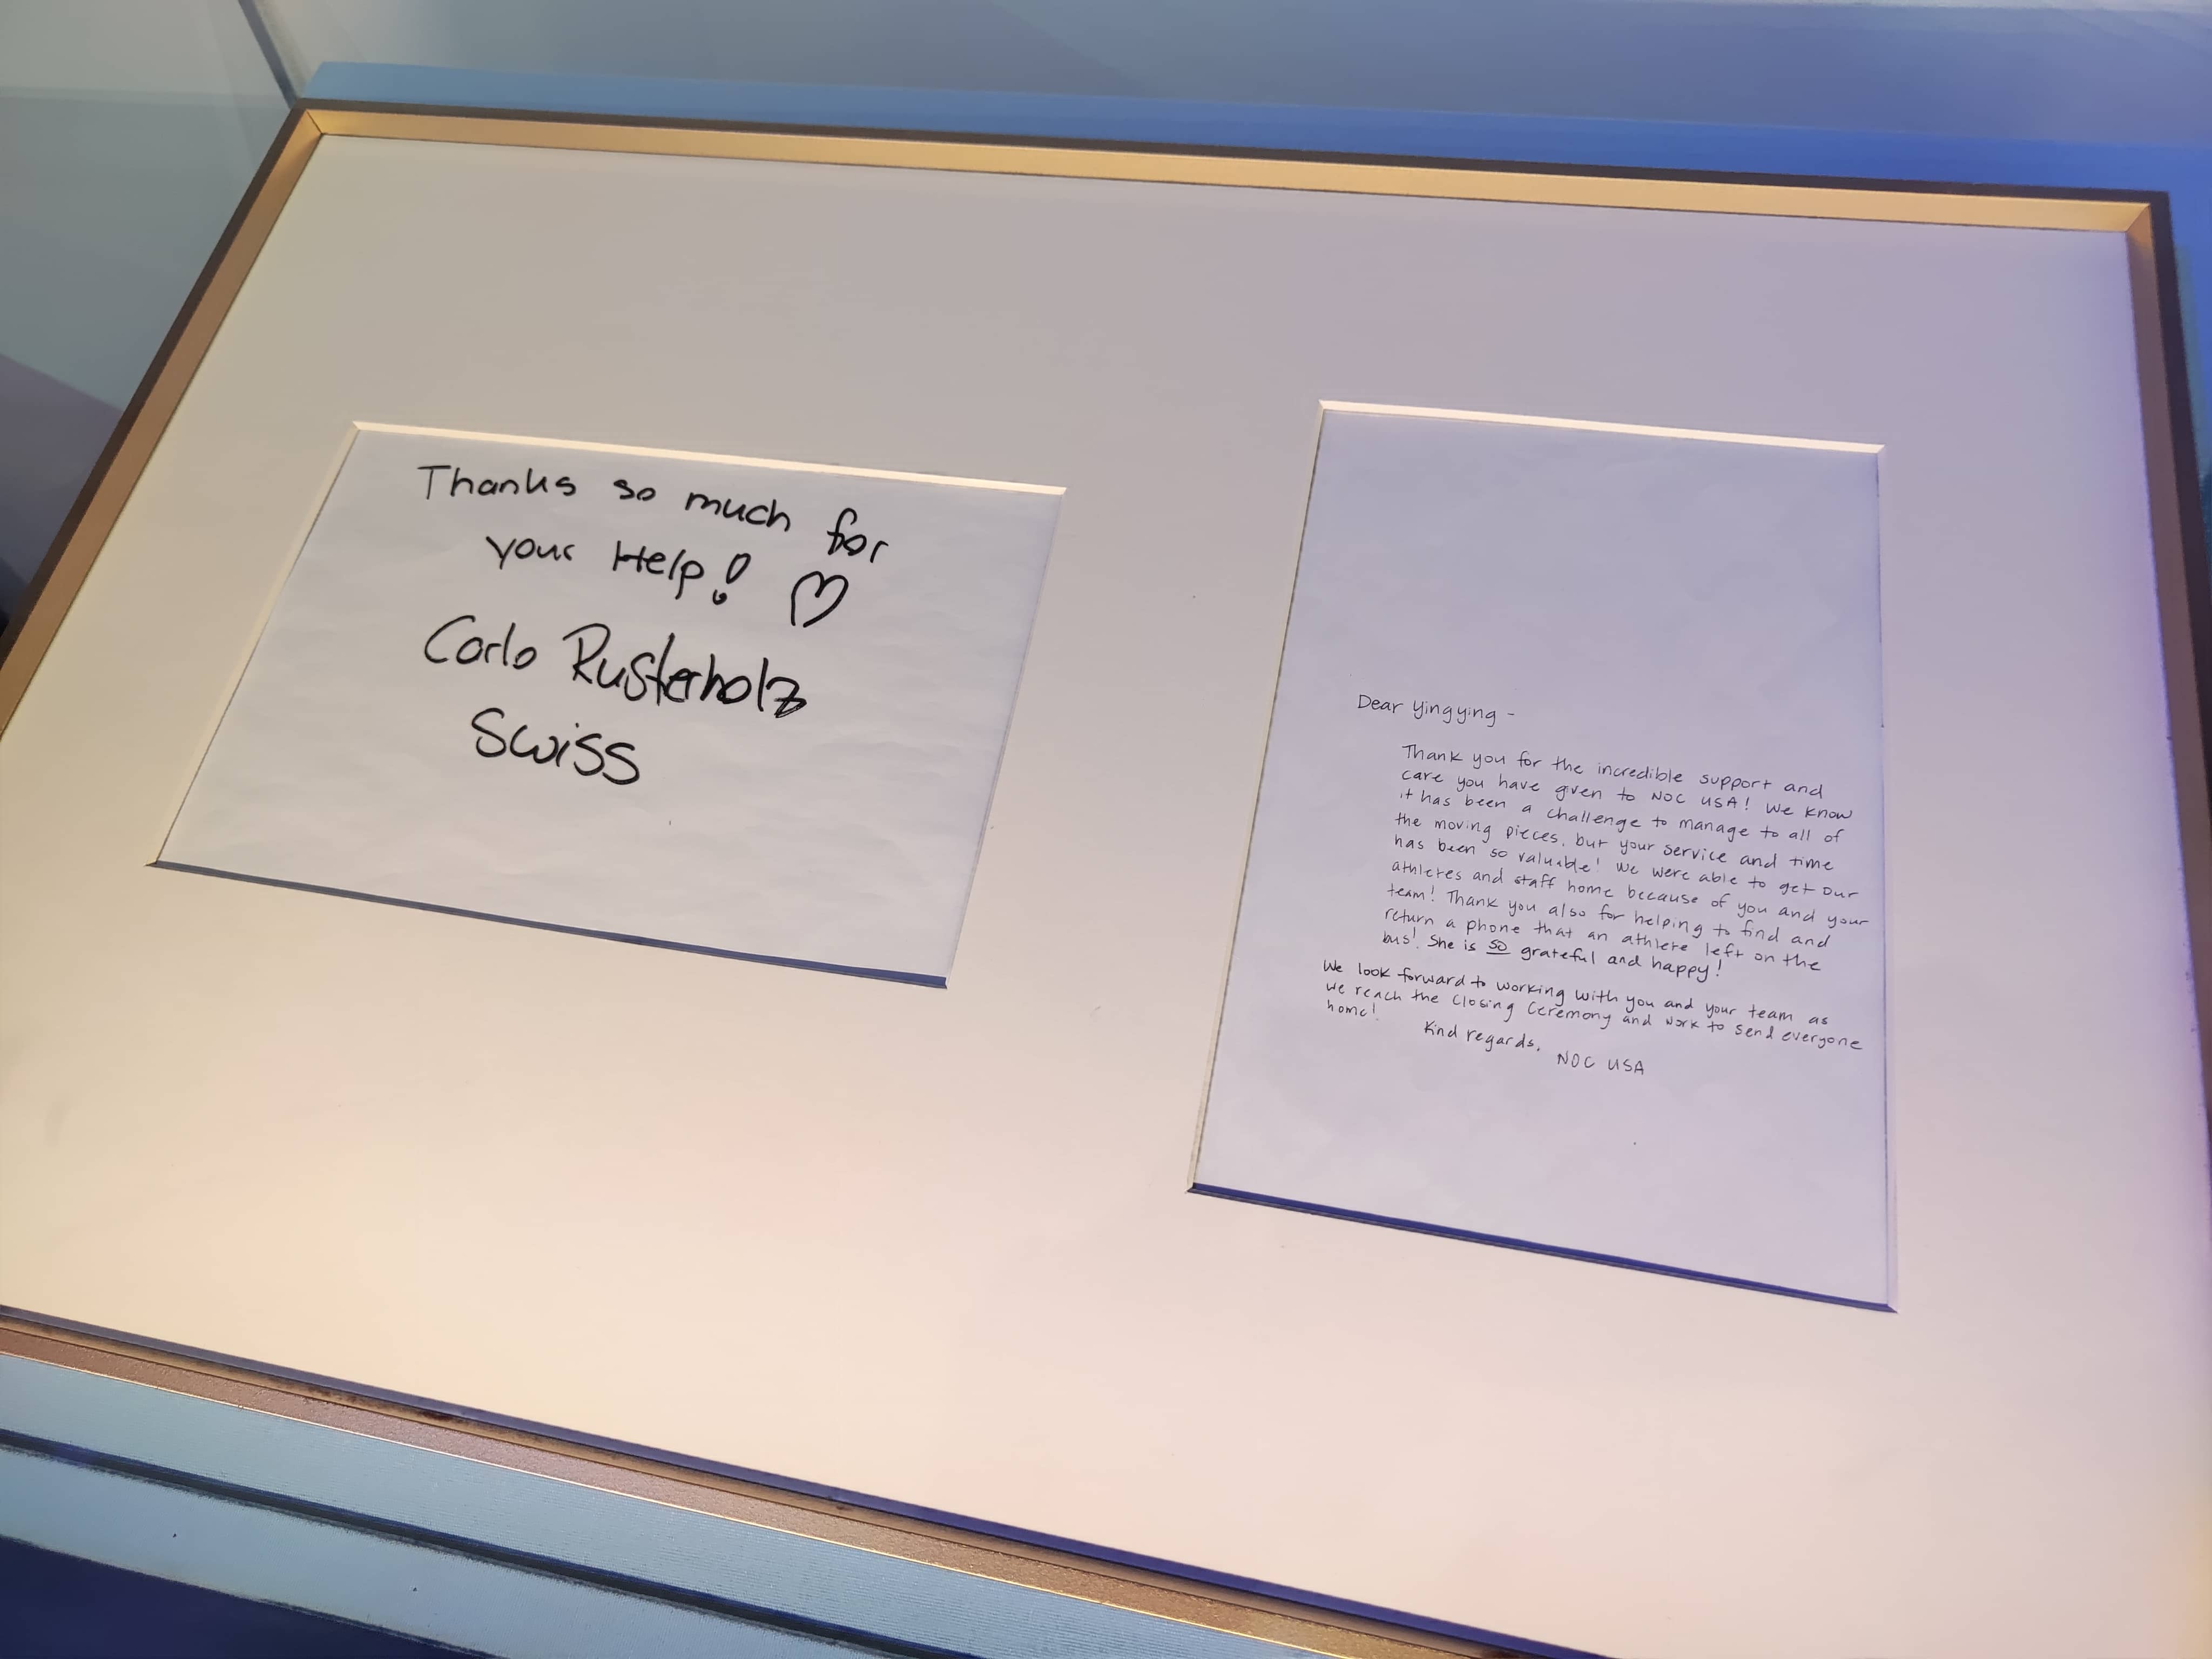 Thanks so much for
your Help! ♡
Carlo Rusterholz
Swiss
Dear Yingying -
Thank you for the incredible support and
care you have given to NOC USA! We know
it has been a challenge to manage to all of
the moving pieces, but your service and time
has been so valuable! We were able to get our
athletes and staff home because of you and your
team! Thank you also for helping to find and
return a phone that an athlete left on the
bus! She is so grateful and happy!
We look forward to working with you and your team as
we reach the Closing Ceremony and work to send everyone
home!
Kind regards,
NOC USA